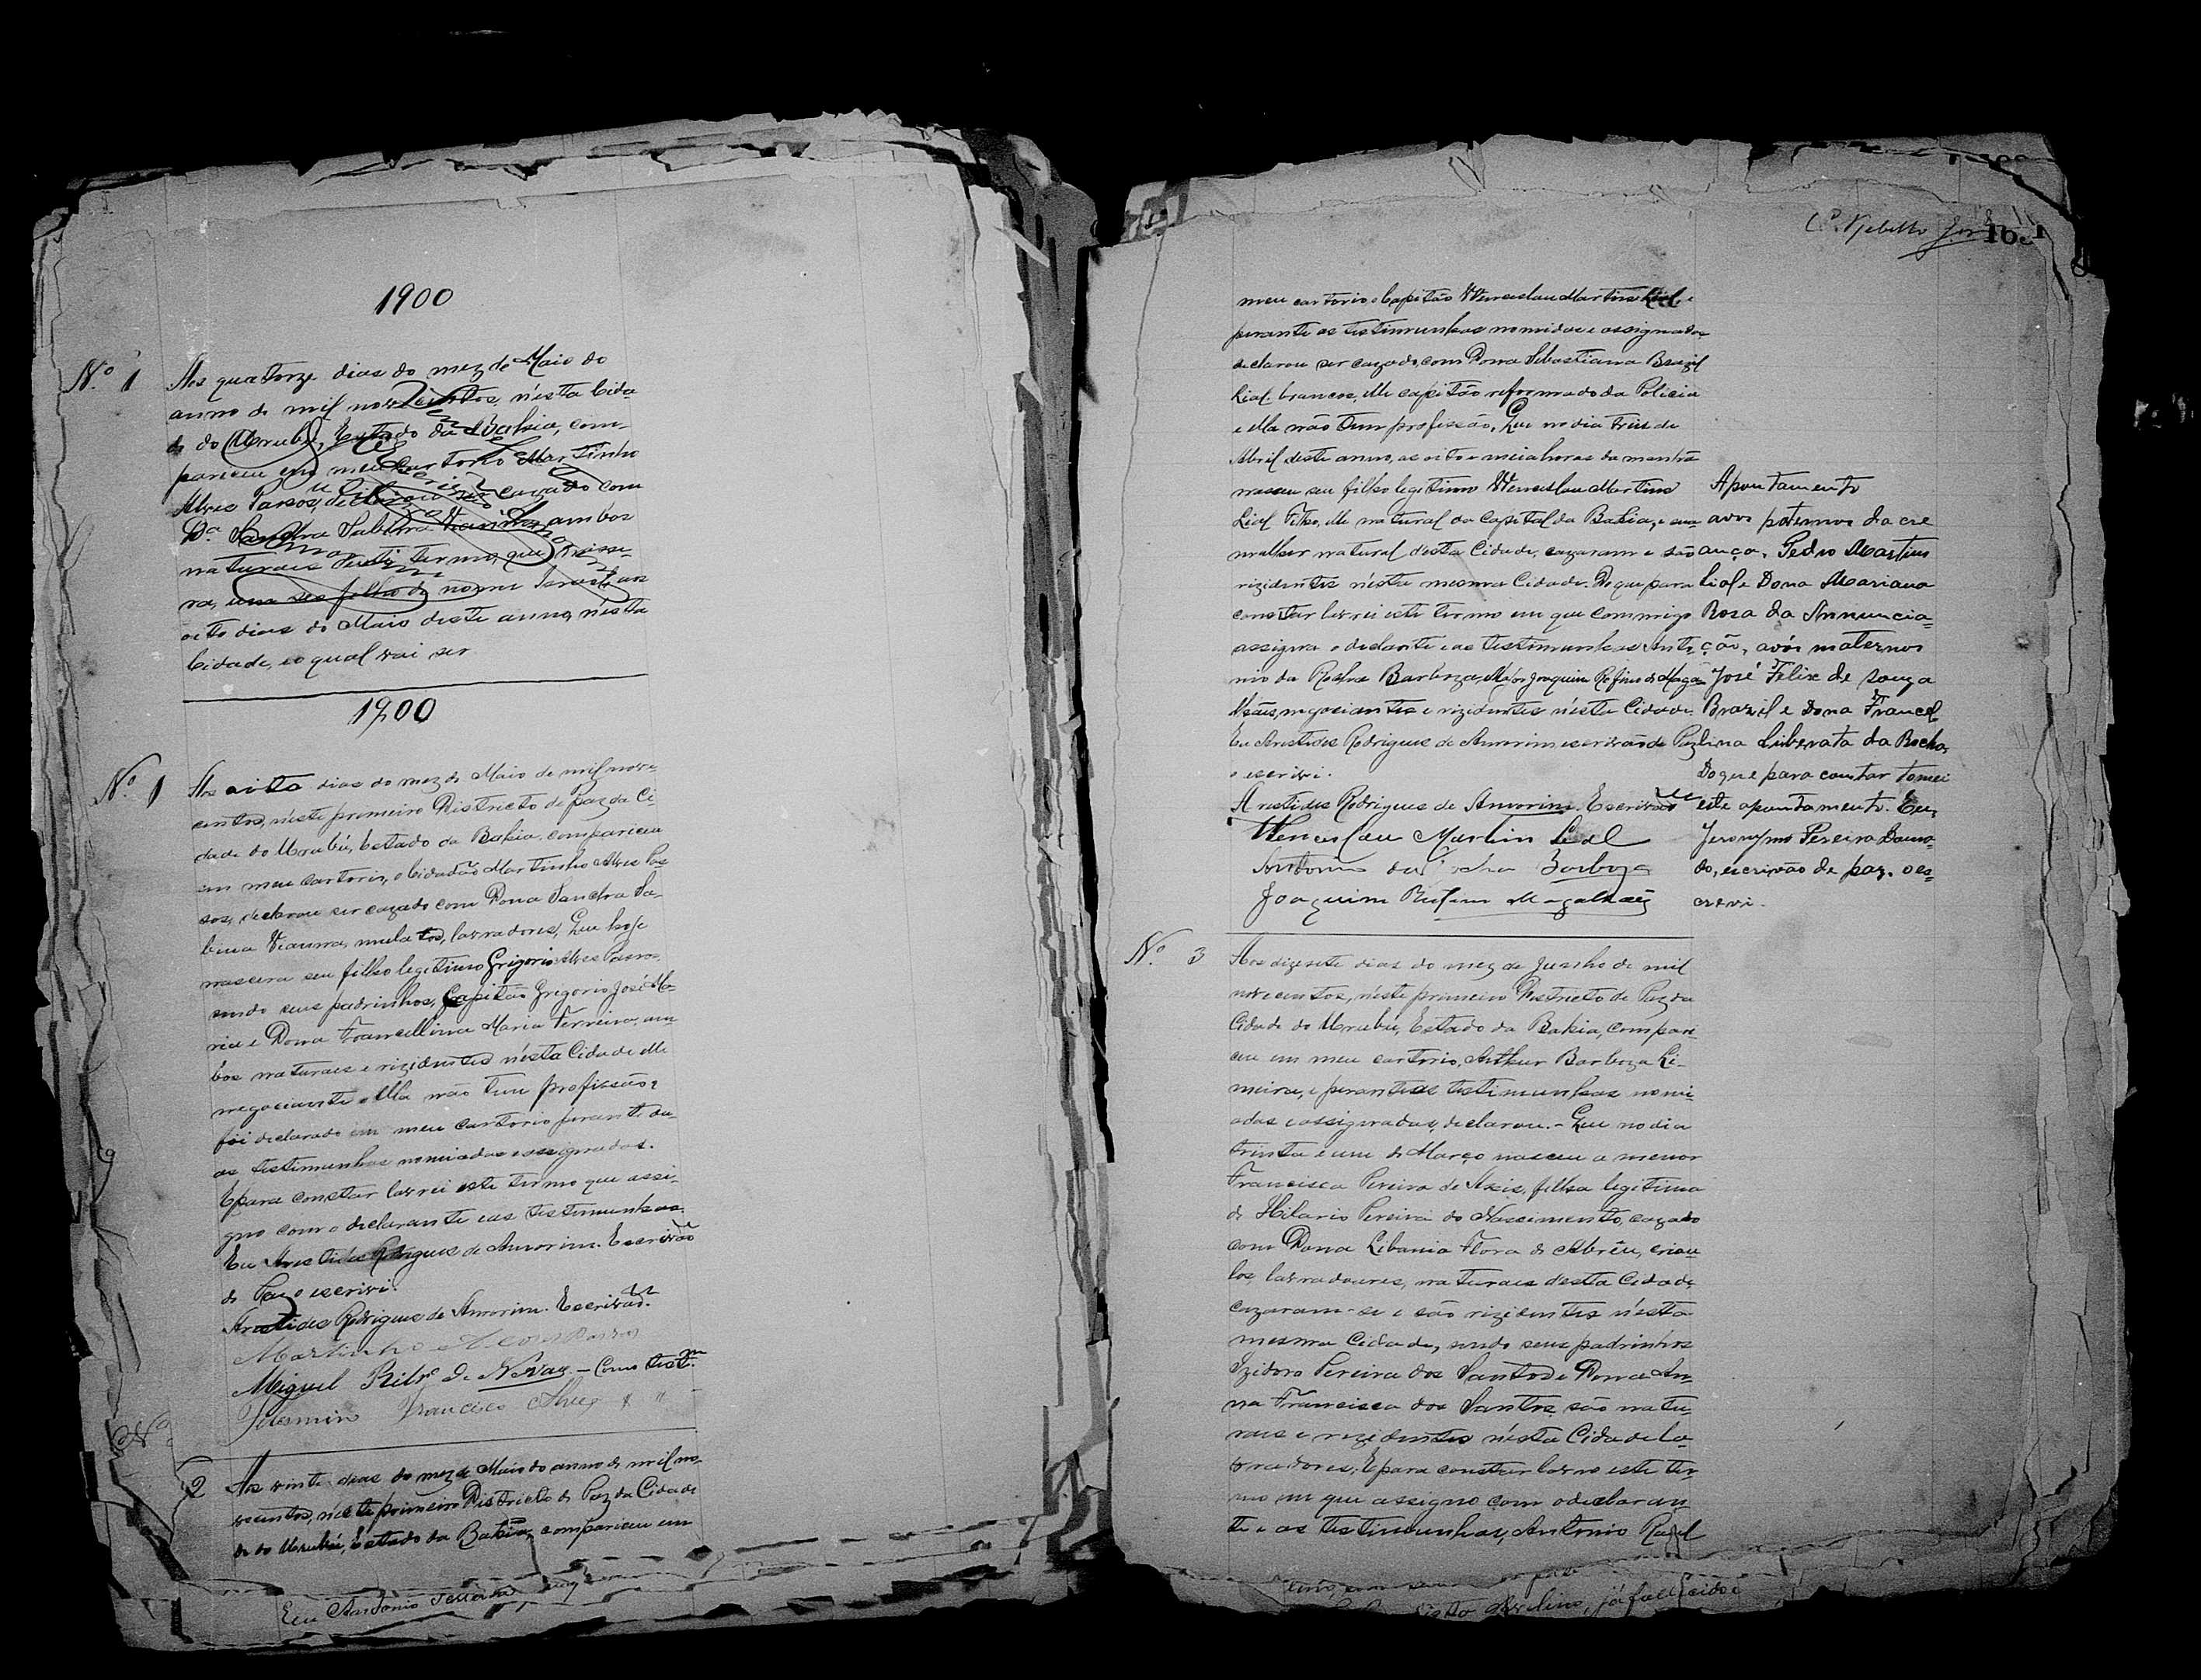 1900
Nº 1 Aos quatorze dias do mez de Maio do
anno de mil novecentos, n'esta Cida-
de do Urubú, Estado da Bahia, com-
pareceu em meu Cartorio Martinho
Alves Passos, declarou ser cazado com
D.ª Sancha Sabina Vianna, ambos
naturais deste termo, que
filho de nome
oito dias de Maio deste anno, n'esta
Cidade, e o qual vai ser
1900
Nº 1 Aos oito dias do mez de Maio de mil nove-
centos, n'este primeiro Districto de Paz da Ci-
dade do Urubú, Estado da Bahia, compareceu
em meu cartorio, o Cidadão Martinho Alves Pas-
sos, declarou ser cazado com Dona Sancha Sa-
bina Vianna, mulatos, lavradores, Que hoje
nascera seu filho legitimo Grigorio Alves Passos
sendo seus padrinhos, Capitão Grigorio José Ma-
ria e Dona Francellina Maria Ferreira, am-
bos naturaes e rizidentes n'esta Cidade elle
negociante e ella não tem profissão,
foi declarado em meu cartorio perante
as testimunhas nomiadas e assignadas.
E para constar lavrei este termo que assi-
gno com o declarante e as testimunhas.
Eu Aristides Rodrigues de Amorim. Escrivão
de Paz o escrivi.
Aristides Rodrigues de Amorim. Escrivão.
Martinho Alves Passos
Miguel Ribrº de Novaes - Como testm.
Francisco Alves " "
Nº
2 Aos vinte dias do mez de Maio do anno de mil no-
vecentos, n'este primeiro Districto de Paz da Cidade
de do Urubú, Estado da Bahia, compareceu em
Eu Antonio
meu cartorio, o Capitão Wenceslau Martins Lial, e
perante as testimunhas nomiadas e assignadas
declarou ser cazado, com Dona Sebastiana Brazil
Lial, brancos, elle capitão reformado da Policia
e ella não tem profissão, Que no dia treis de
Abril deste anno, as oito e meia horas da manhã
nasceu seu filho legitimo Wenceslau Martins
Lial Filho, elle natural da Capital da Bahia, e sua
mulher natural desta Cidade, cazaram e são
rizidentes n'esta mesma Cidade. Do que para
constar lavrei este termo em que commigo
assigna o declarante e as testimunhas Anto-
nio da Rocha Barboza, Major Joaquim Rofino de Maga-
lhães, negociantes e rizidentes n'esta Cidade.
Eu Aristides Rodrigues de Amorim escrivão de Paz
o escrivi.
Aristides Rodrigues de Amorim. Escrivão
Wenceslau Martins Leal
Antonio da Rocha Barboza
Joaquim Rufino Magalhães
Apontamento
avos paternos da cre
ança, Pedro Martins
Lial e Dona Mariana
Rosa da Annuncia-
ção, avós maternos
José Felix de Souza
Brazil e Dona Francel-
lina Liberata da Rocha,
Do que para constar tomei
este apontamento. Eu,
Jeronymo Pereira Doura-
do, escrivão de paz, o es-
crevi.
Nº 3 Aos dizesete dias do mez de Junho de mil
novecentos, n'este primeiro Districto de Paz da
Cidade do Urubú, Estado da Bahia, compare-
ceu em meu cartorio, Arthur Barboza Li-
meira, e perante as testimunhas nomi-
adas e assignadas, declarou. - Que no dia
trinta e um de Março nasceu a menor
Francisca Pereira de Assis, filha legitima
de Hilario Pereira do Nascimento, cazado
com Dona Libania Flora de Abreu, criou-
los, lavradoures, naturaes desta Cidade,
cazaram-se e são rizidentes n'esta
mesma Cidade, sendo seus padrinhos
Izidoro Pereira dos Santos e Dona An-
na Francisca dos Santos, são natu-
raes e rezidentes n'esta Cidade la-
vradores; E para constar lavro este ter-
mo em que assigno com o declaran-
te e as testimunhas, Antonio
já fallecido e